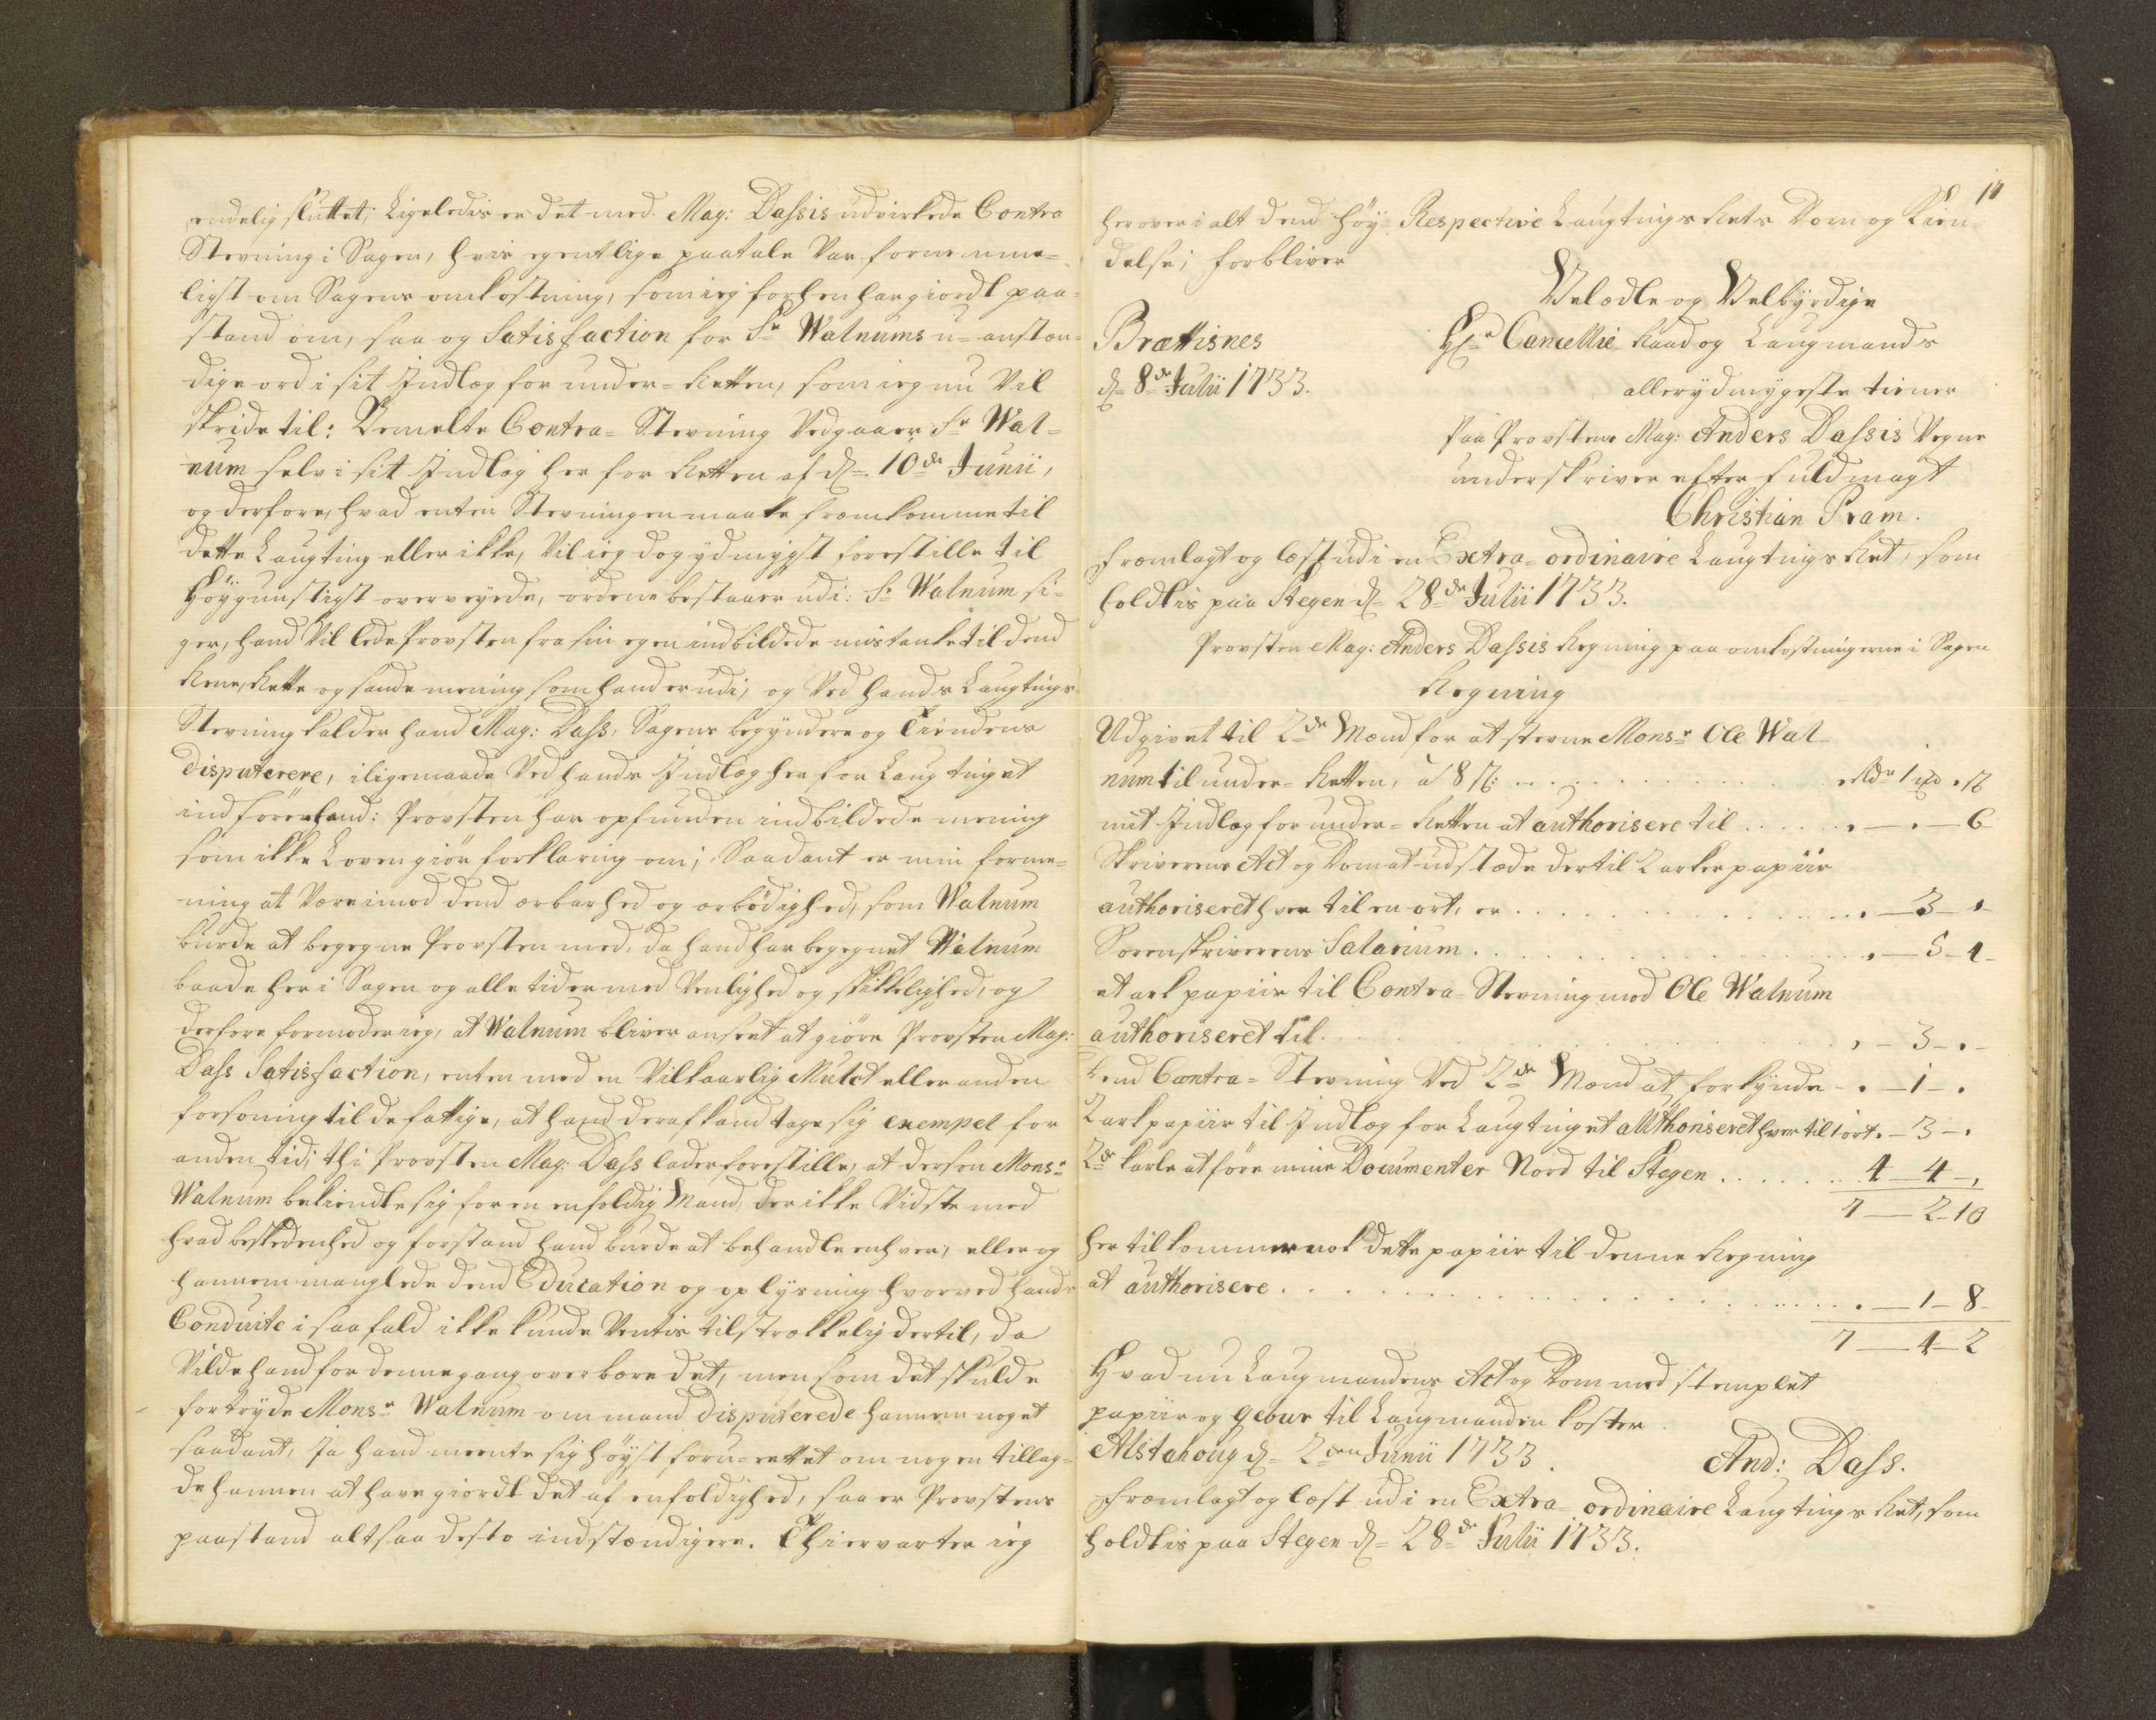 endelig sluttet; Ligeledis er det med Mag: Dassis udvirkede Contra
Stevning i Sagen, hvis egentlige paatale Var fornemme=
ligst om Sagens omkostning, som ieg forhen har giordt paa=
stand om, saa og Satisfaction for Sr Walnums u=anstæn=
dige ord i sit Indlæg for under=Retten, som ieg nu Vil
skride til: Bemelte Contra=Stevning Vedgaaer Sr Wal=
num selv i sit Indlæg her for Retten af d= 10de Junii,
og derfore, hvad enten Stevningen maatte fremkomme til
dette Laugting eller ikke, Vil ieg dog ydmygst forestille til
Höygunstigst overveyede, ordene bestaaer udi: Sr Walnum si=
ger, hand Vil lede Provsten fra sin egen indbildede mistanke til dend
Rene, Rette og sande mening som hand er udi, og Ved hands Laugtings
Stevning kalder hand Mag: Dass, Sagens begyndere og Tiendens
disputerere, iligemaade Ved hands Indlæg her for Laugtinget
indförer hand: Provsten har opfunden indbildede mening
som ikke Loven giör forklaring om; Saadant er min forme=
ning at Være imod dend ærbarhed og ærbödighed, som Walnum
burde at begegne Provsten med, da hand har begegnet Walnum
baade her i Sagen og alle tider med Venlighed og skikkelighed, og
derfore formoder ieg, at Walnum bliver anseet at giöre Provsten Mag:
Dass Satisfaction, enten med en Vilkaarlig Mulct eller anden
forsoning til de fattige, at hand deraf kand tage sig exempel for
anden tid; thi Provsten Mag: Dass lader forestille, at dersom Monsr
Walnum bekiendte sig for en enfoldig Mand, der ikke Vidste med
hvad beskedenhed og forstand hand burde at behandle enhver, eller og
hannem manglede dend Education og oplysning hvorved hands
Conduite i saa fald ikke kunde Ventis tilstrækkelig dertil, da
Vilde hand for denne gang overbære det, men som det skulde
fortryde Monsr Walnum om mand disputerede hannem noget
saadant, Ja hand meente sig höyst foru=rettet om nogen tillag=
de hannem at have giordt det af enfoldighed, saa er Provstens
paastand altsaa desto indstændigere. Thi ervarter ieg
10
herover i alt dend höy Respective Laugtings Rets Dom og Kien=
delse; forbliver
Velædle og Velbyrdige
Hr Cancellie Raad og Laugmands
Brættisnes
d= 8de Julii 1733.
allerydmygeste tiener
Paa Provstens Mag: Anders Dassis Vegne
underskriver efter fuldmagt
Christian Pram.
Fremlagt og læst udi en Extra=ordinaire Laugtings Ret, som
holdtis paa Stegen d= 28de Julii 1733.
Provsten Mag: Anders Dassis Regning paa omkostningerne i Sagen
Regning
Udgivet til 2de Mænd for at stevne Monsr Ole Wal
num til under=Retten, à 8 s: . . . . . . . Rdr 1 . s
mit Indlæg for under=Retten at authorisere til . . . . . . — . — 6
Skriverens Act og Dom at udstæde dertil 2 arker papiir
authoriseret hver til en ort, er . . . . . . . — 3 — .
Sorenskriverens Salarium . . . . . . . — 5 — 4
et ark papiir til Contra=Stevning mod Ole Walnum
authoriseret til . . . . . . . — 3 — .
Dend Contra=Stevning Ved 2de Mænd at forkynde . — 1 — .
2 ark papiir til Indlæg for Laugtinget authoriseret hver til 1 ort . — 3 — .
2de karle at före mine Documenter Nord til Stegen . . . . . 4 — 4 — .
7 — 2 — 10
her til kommer nok dette papiir til denne Regning
at authorisere . . . . . . . — 1 — 8
7 — 4 — 2
Hvad nu Laugmandens Act og Dom med stemplet
papiir og Gebur til Laugmanden koster.
Alstahoug d= 2den Junii 1733.
And: Dass.
Fremlagt og læst udi en Extra=ordinaire Laugtings Ret, som
holdtis paa Stegen d= 28de Julii 1733.